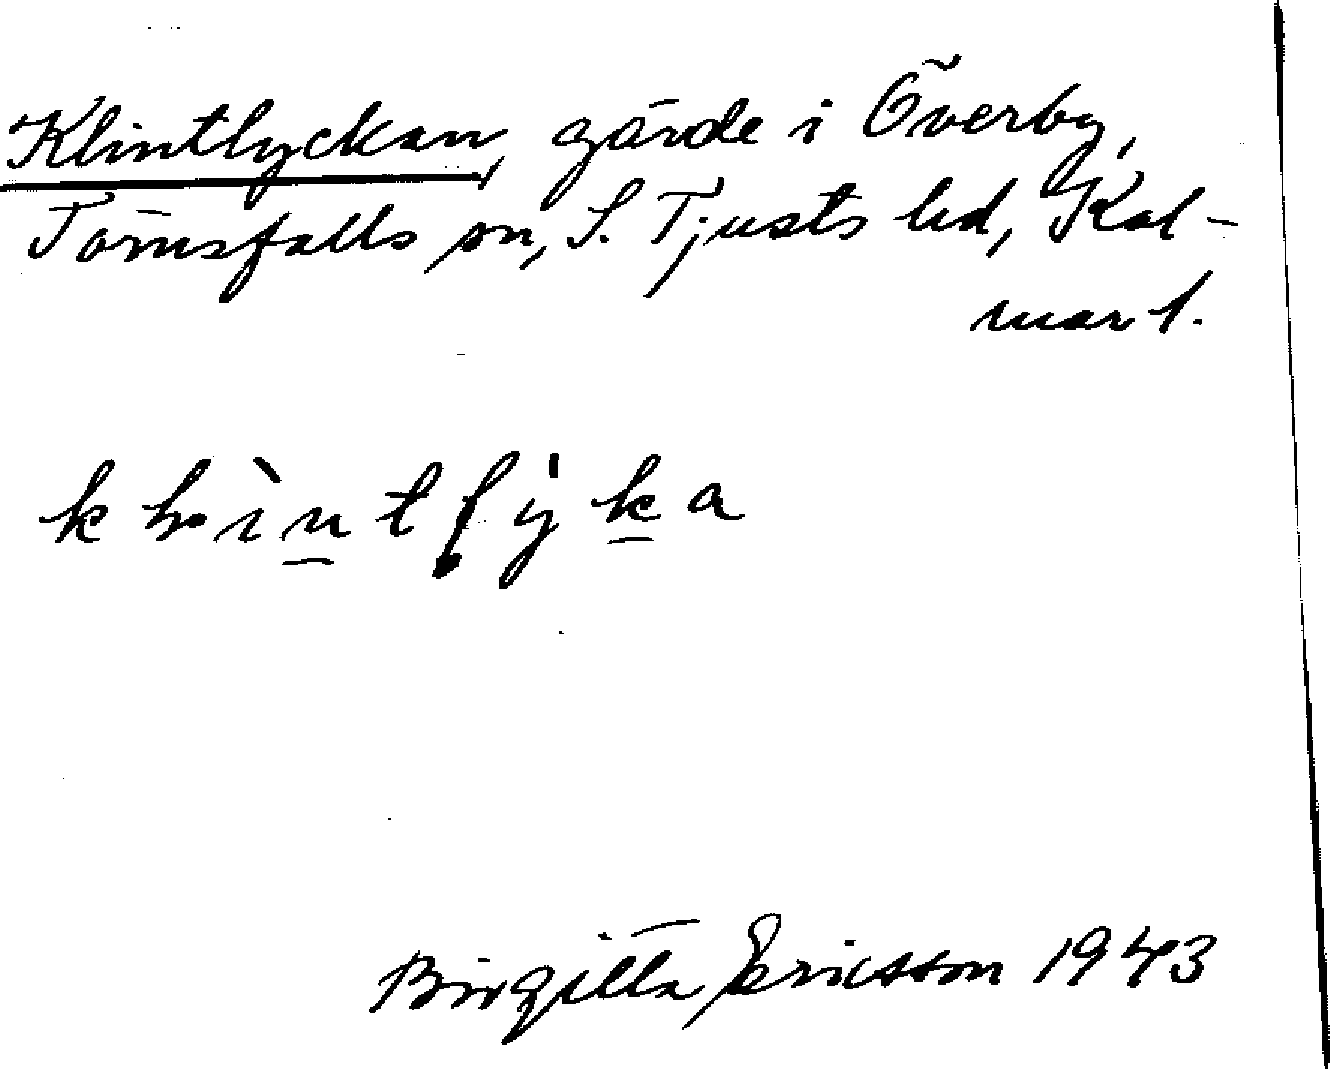 Klintlyckan, gärde i Överby,
Törnsfalls sn, S. Tjusts hd, Kal-
mar l.
Birgitta Ericsson 1943